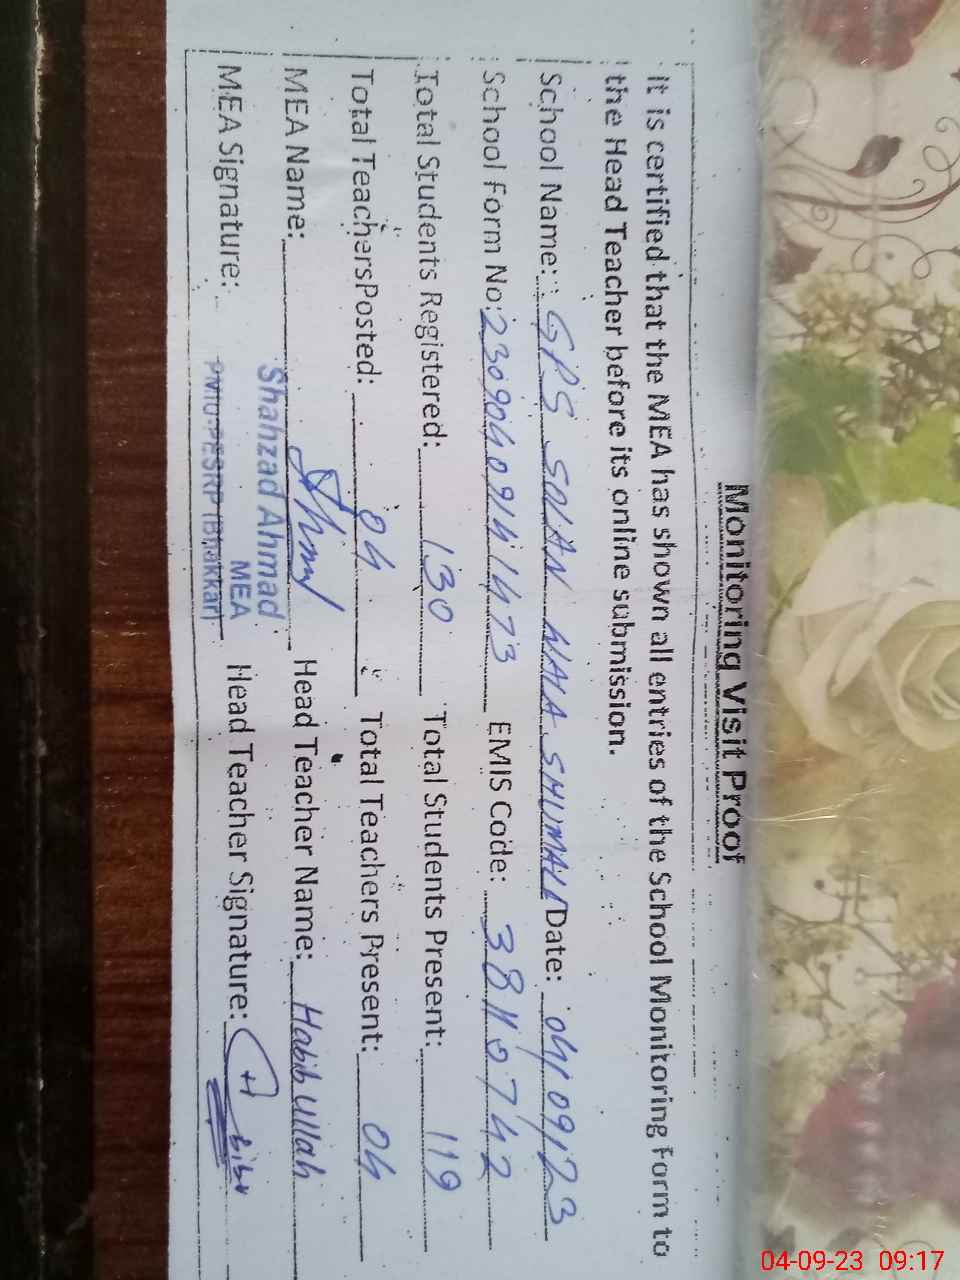 Monitoring Visit Proof
It is certified that the MEA has shown all entries of the School Monitoring Form to
the Head Teacher before its online submission.
School Name: GPS SOLAN WALA SHUMALI Date: 04/09/23
School Form No: 23090409141473 EMIS Code: 38110742
Total Students Registered: 130 Total Students Present: 119
Total Teachers Posted: 04 Total Teachers Present: 04
MEA Name: Head Teacher Name: Habib Ullah
Shahzad Ahmad
MEA Signature: MEA Head Teacher Signature:
PMIU-PESRP (Bhakkar)
04-09-23 09:17